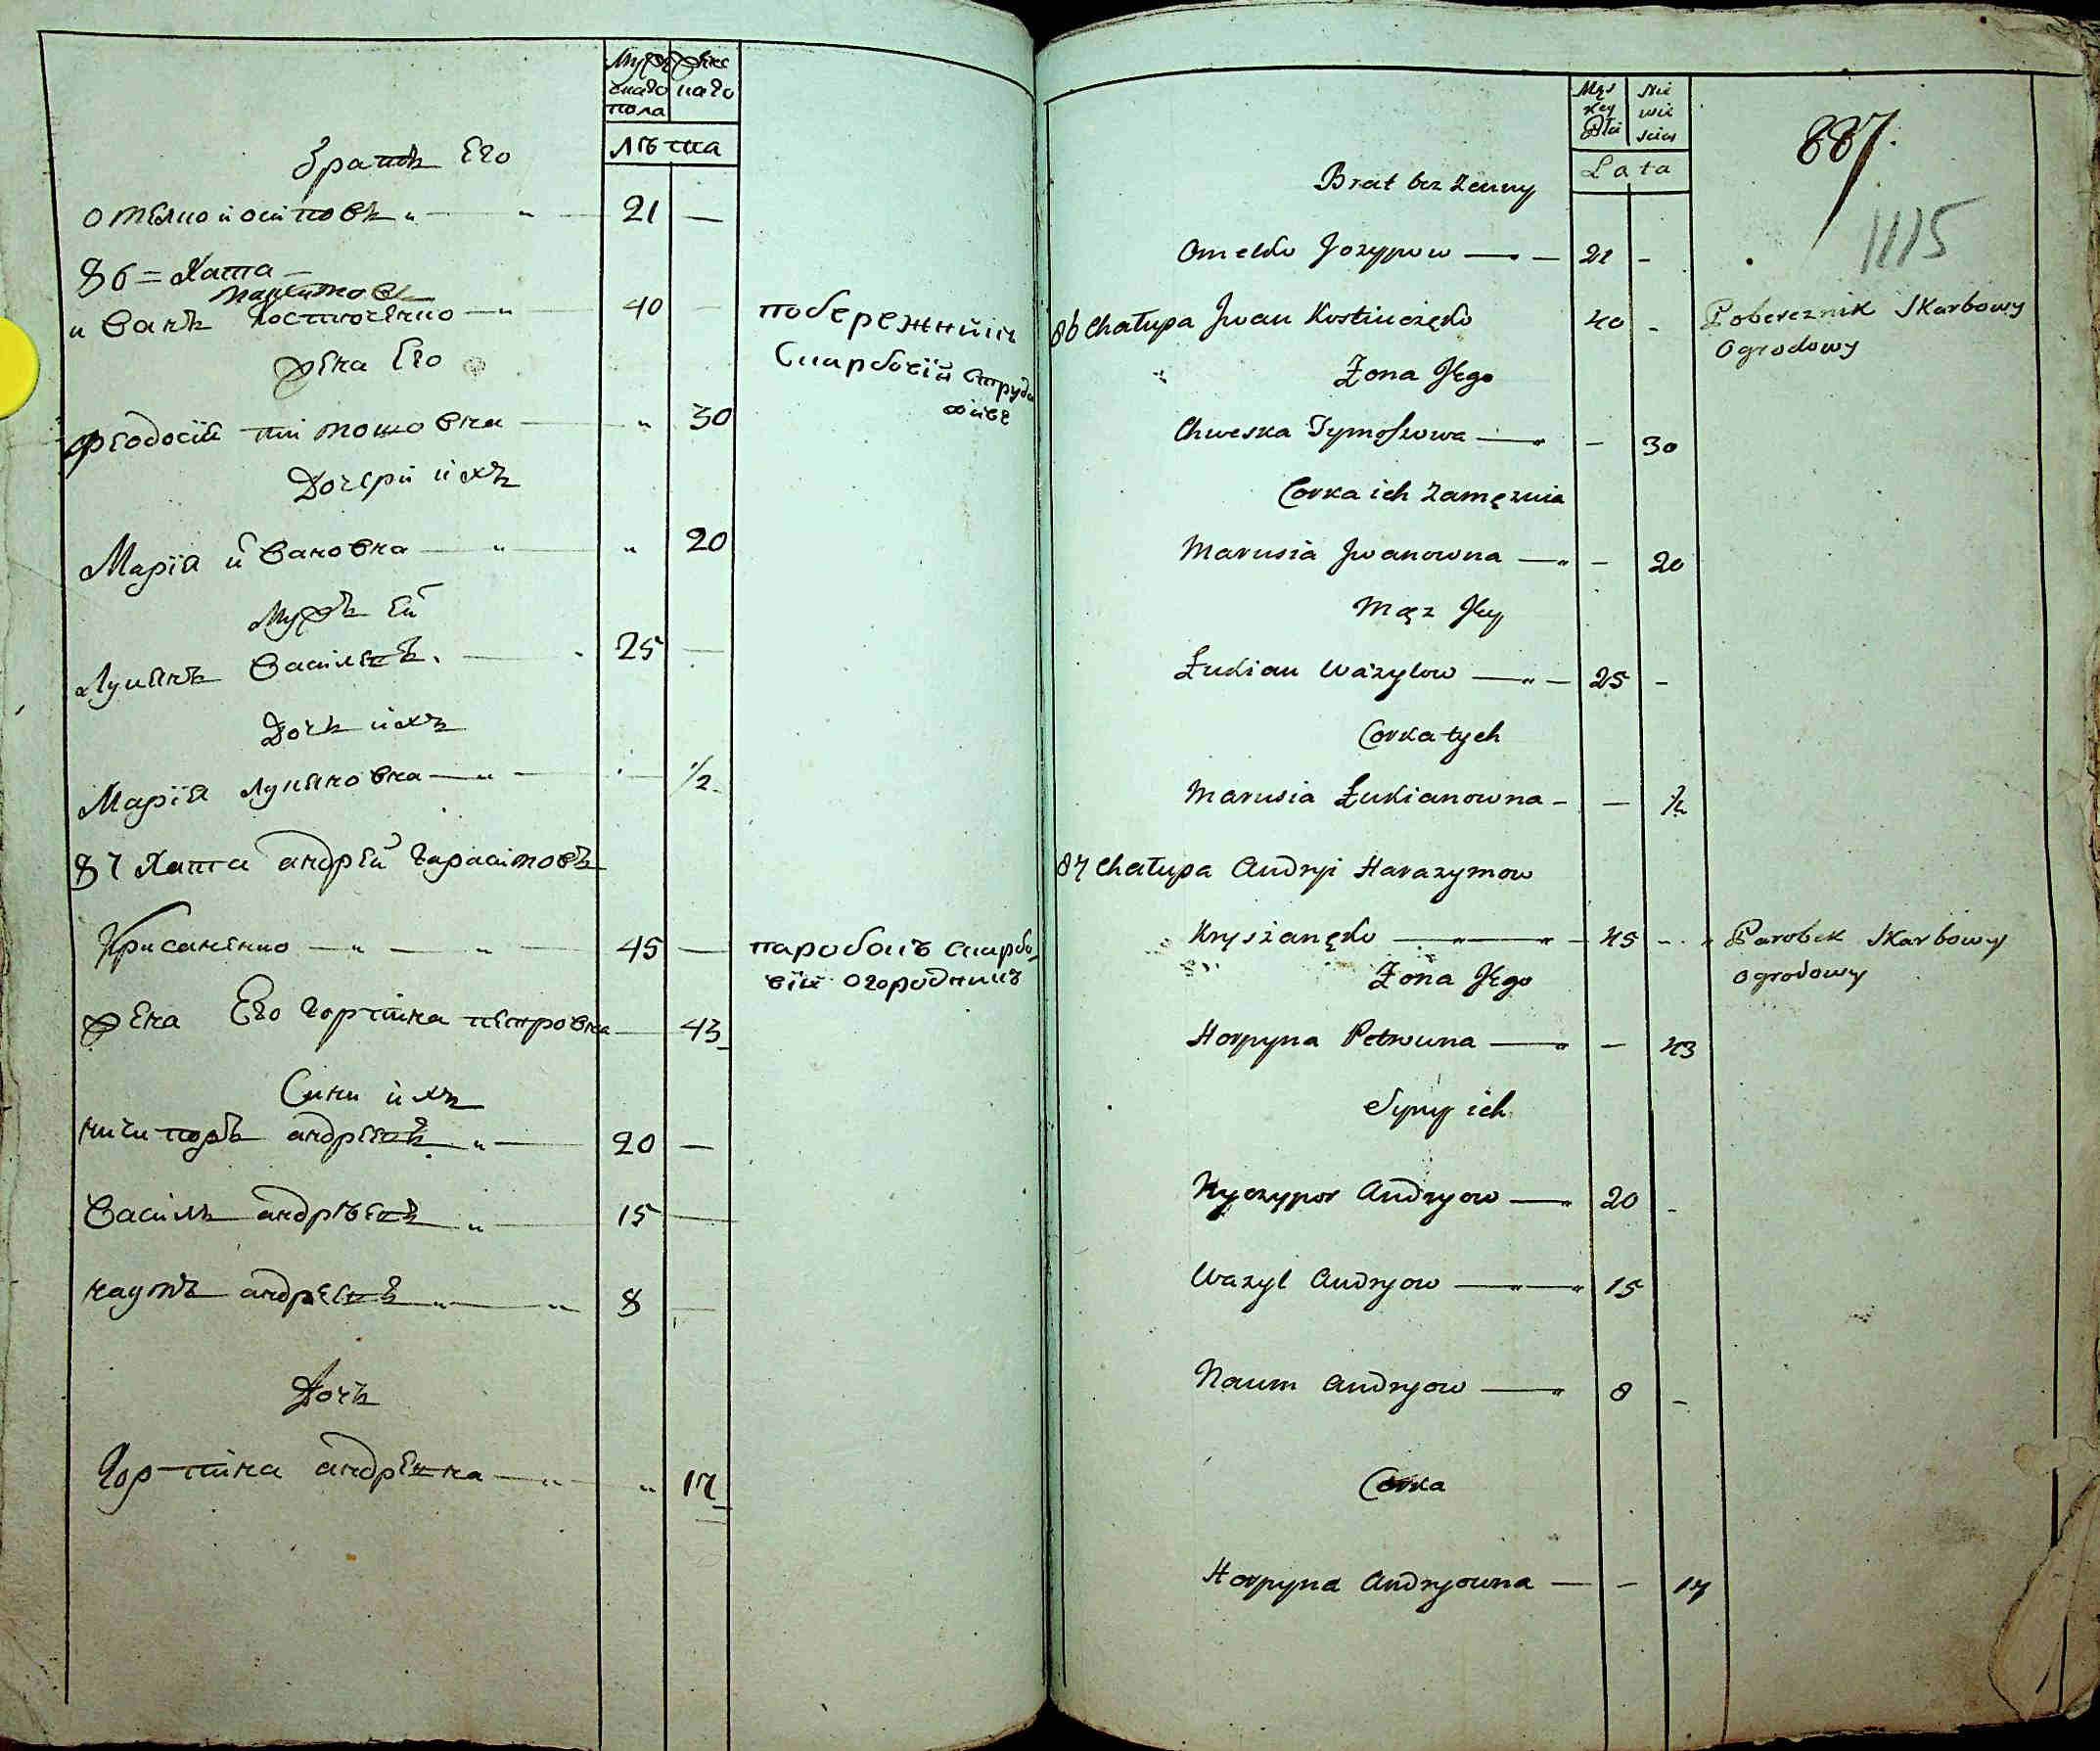 Муж
ска҃го
пола
жен
на҃го
Лѣта
Братъ Его
Омелко Йосиповъ 21 —
86 = Хата —
Максимовъ
иванъ Костюченко — 40 —
побережний
Скарбовій
жена Его
Феодосія Тимошовна — " 30
Дочери ихъ
Марія Ивановна " " 20
Мужъ Ей
Лукянъ Василевъ. — 25 —
Дочь ихъ
Марія Лукяновна — " — 1/2
87 Хата андрей гарасимовъ
Крисаненко — " — " — 45 —
паробокъ скарбо
вій огородникъ
жена Его горпина петровна — 43
Сини ихъ
ничипоръ андреевъ " — 20 —
Василь андрѣевъ " — 15 —
наумъ андреевъ " — " 8 —
Дочь
Горпина андревна — " " 17
Męs
key
Płci
Nie
wie
sciey
Lata
887.
1115
Brat bez Zenny
Omelko Jozypow — — 21 –
86 Chałupa Jwan Kostiuczęko 40 – Pobereznik Skarbowy
Ogrodowy
Żona Jego
Chweska Tymoszowa — – 30
Corka ich Zamęznia
Marusia Jwanowna — – 20
Mąz Jey
Łukian Wazylow — – 25 –
Corka tych
Marusia Łukianowna – — 1/2
87 Chałupa Andryi Harazymow
Kryszanęko — 45 – Parobek Skarbowy
ogrodowy
Żona Jego
Horpyna Petrowna — – 43
Syny ich
Nyczypor Andryow — 20 –
Wazyl Andryow — 15
Naum Andryow — 8 –
Corka
Horpyna Andryowna — – 17